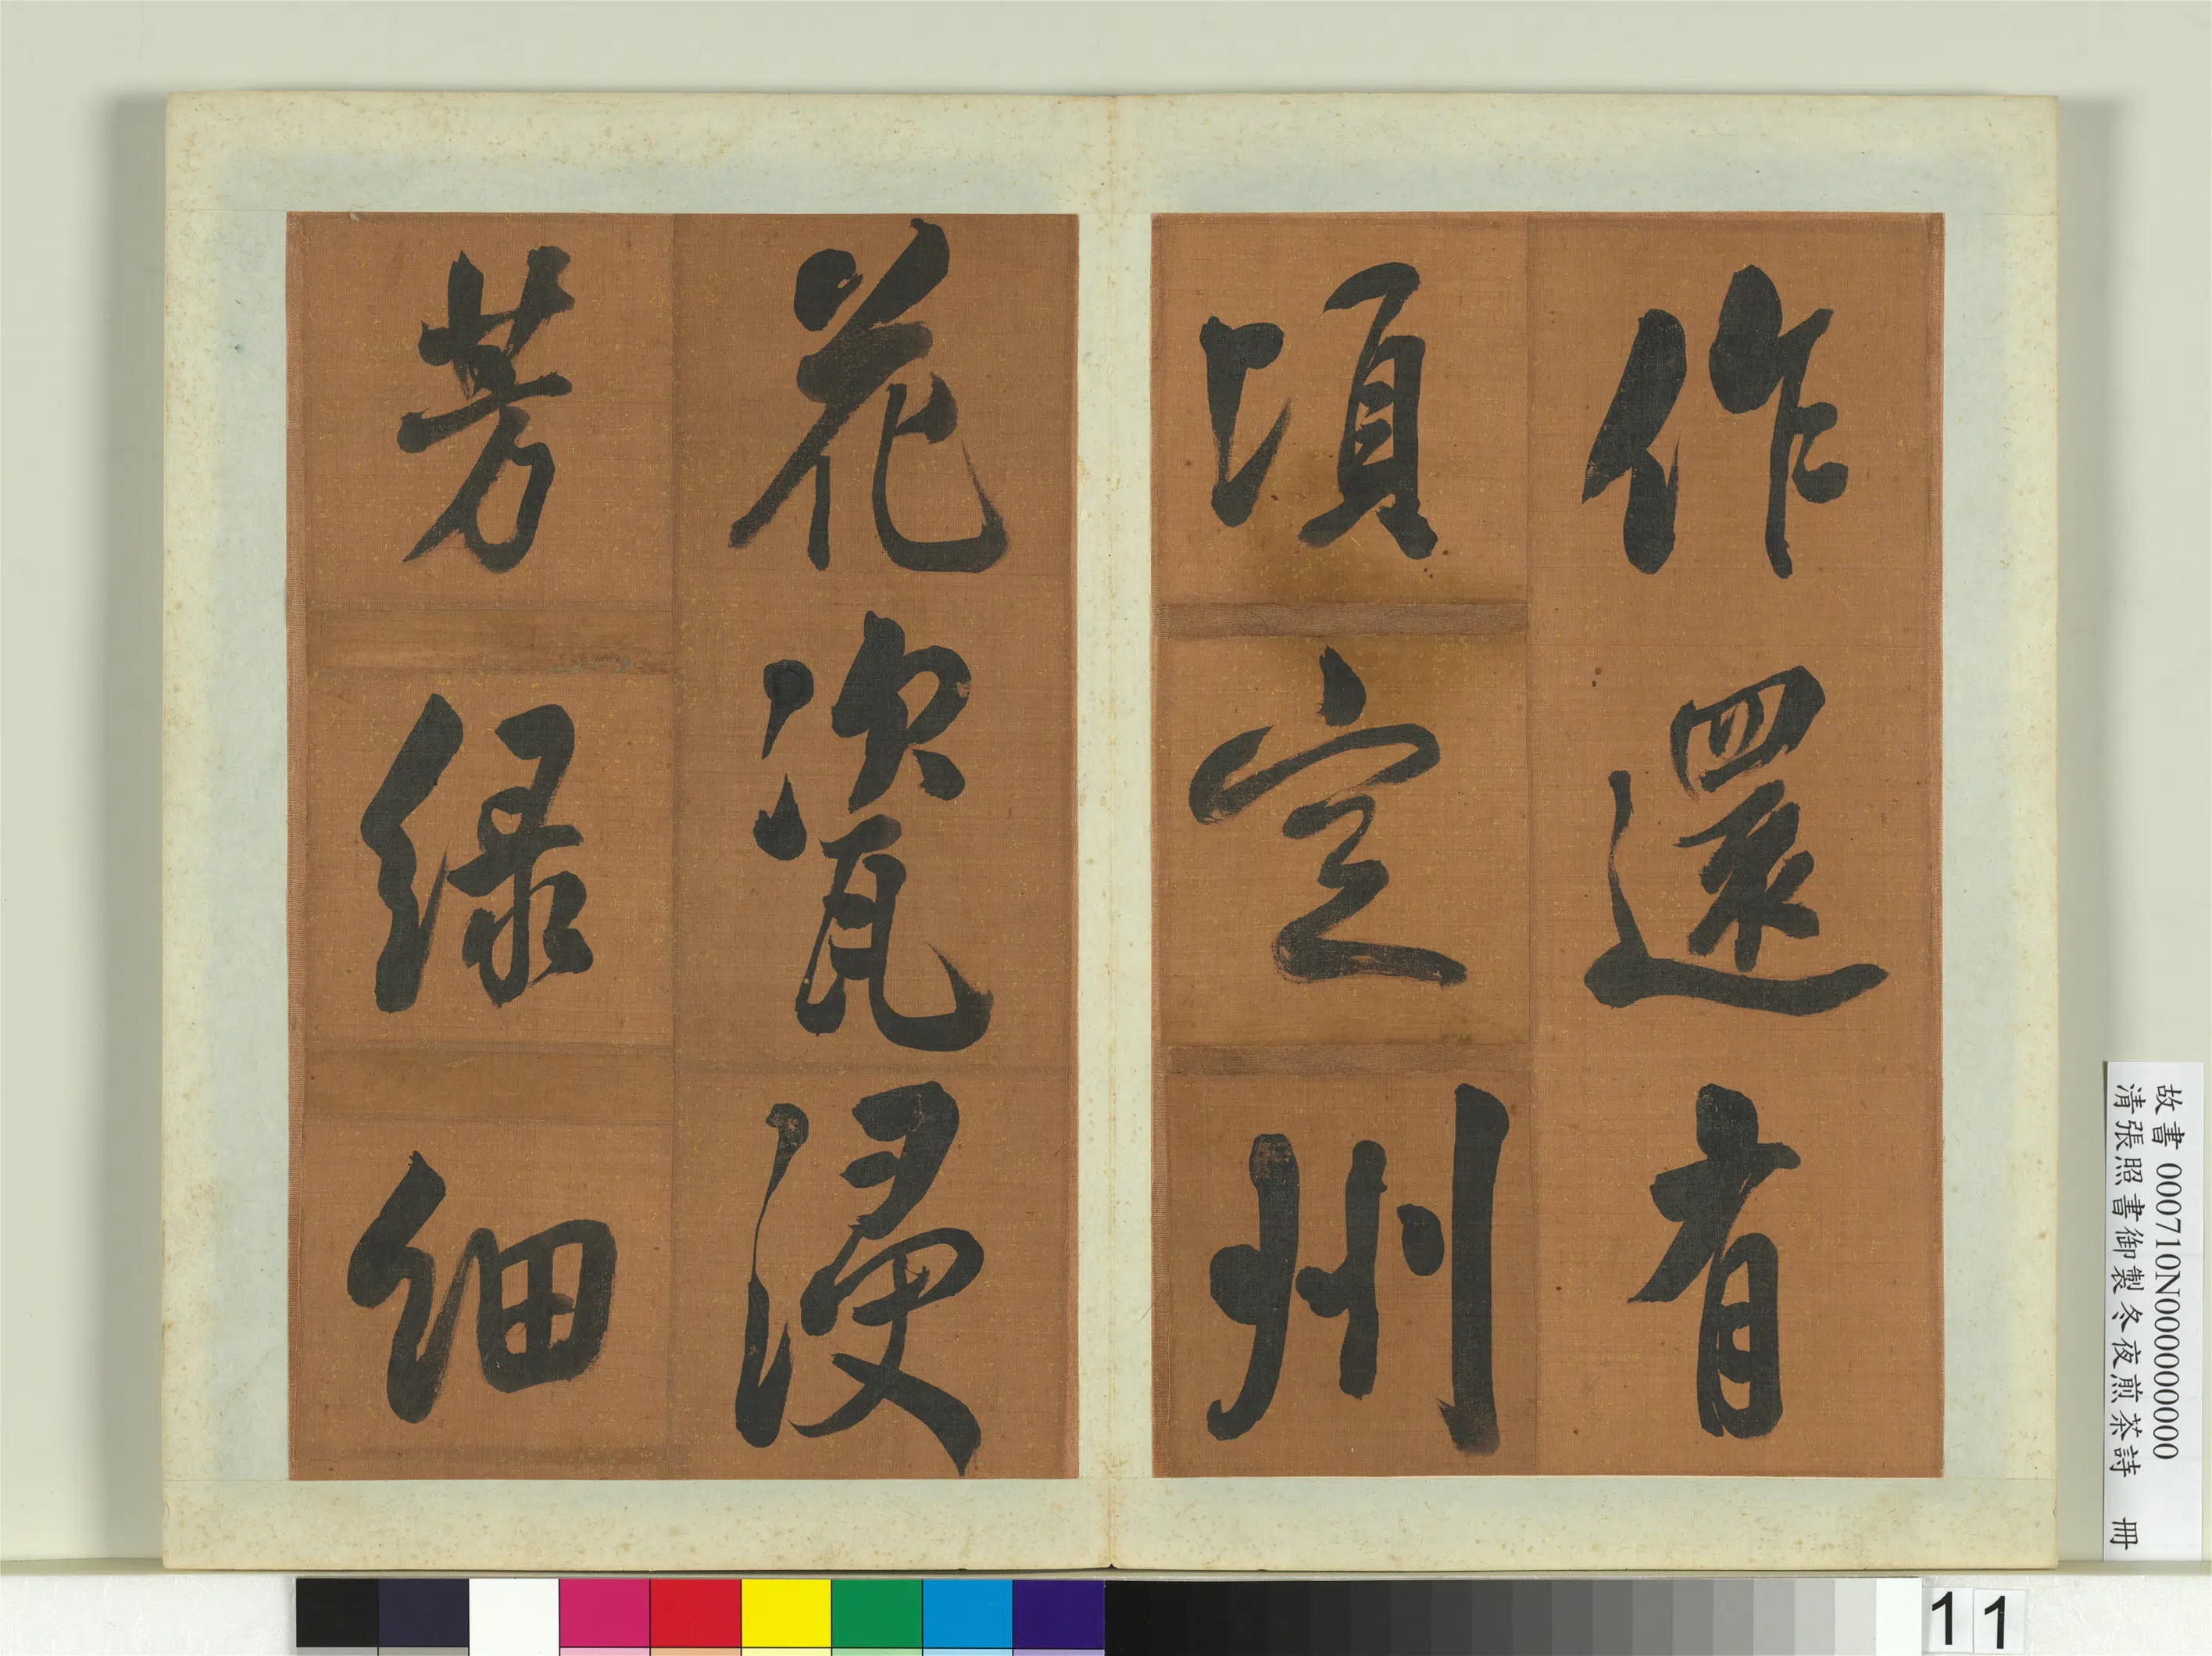 作還有
頃定州
花瓷浸
芳綠細
故書 000710N000000000
清張照書御製冬夜煎茶詩 冊
11